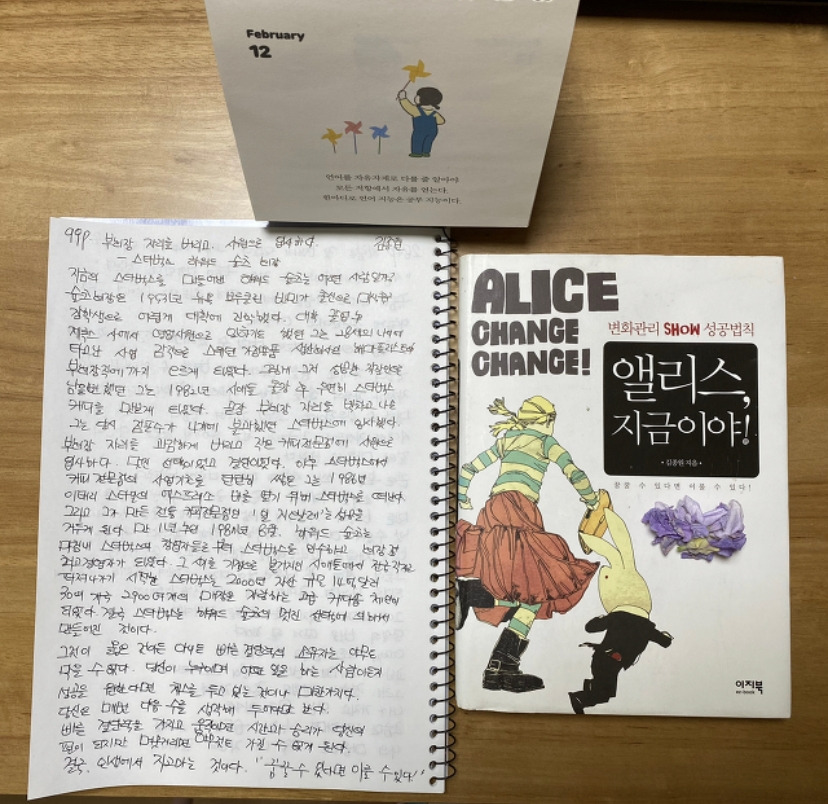 February
12
언어를 자유자재로 다룰 줄 알아야
모든 저항에서 자유를 얻는다.
한마디로 언어 지능은 공부 지능이다.
99p 부회장 자리를 버리고, 사원으로 입사하다. 김종원
- 스타벅스 하워드 슐츠 회장
지금의 스타벅스를 만들어낸 하워드 슐츠는 어떤 사람일까?
슐츠 회장은 1953년 뉴욕 브루클린 빈민가 출신으로
장학생으로 어렵게 대학에 진학했다. 대학 졸업 후
제록스 사에서 영업사원으로 일하기도 했던 그는 28세의 나이에
타고난 사업 감각으로 스웨덴 가정용품
부회장직에까지 오르게 되었다. 그런데 그저
그는 1982년 시애틀 출장 후 우연히 스타벅스
커피를 맛보게 되었다. 곧장 부회장 자리를 박차고 나온
그는 당시 점포수가 4개에 불과했던 스타벅스에 입사했다.
부회장 자리를 과감하게 버리고 작은 커피전문점에 사원으로
입사하다. 선택이었고 결단이었다. 이후 스타벅스에서
커피 전문점의 사업기초를 탄탄히 쌓은 그는 1986년
이태리 스타일의 에스프레소 바를 열기 위해 스타벅스를 떠난다.
그리고 그가 만든 전문 커피전문점 '일 지오날레'는 성공을
거두게 된다. 그만 1년 후인 1987년 8월, 하워드 슐츠는
마침내 스타벅스의 창업자들로부터 스타벅스를 인수하고 회장 겸
최고경영자가 되었다. 그 시애틀에서 전국적으로
퍼져나가기 시작한 스타벅스는 2000년 자산 규모 14억 달러
30여 개국 2900여개의 매장을 자랑하는 고급 커피숍 체인이
되었다. 결국 스타벅스는 하워드 슐츠의 멋진 선택에 의해서
만들어진 것이다.
그것이 옳은 것이든 아니든 빠른 결단력의 소유자는 아무도
막을 수 없다. 당신이 누구이며 어떤 일을 하는 사람이든지
성공을 원한다면 체스를 두고 있는 것이나 마찬가지다.
당신은 매번 다음 수를 생각해 두어야만 한다.
빠른 결단력을 가지고 움직이면 시간과 승리가 당신의
편이 되지만 머뭇거리면 아무것도 가질 수 없게 된다.
결국, 인생에서 지고마는 것이다. "꿈꿀 수 있다면 이룰 수 있다!"
ALICE
CHANGE
CHANGE!
변화관리 SHOW 성공법칙
앨리스,
지금이야!
• 김종원 지음 •
꿈꿀 수 있다면 이룰 수 있다!
이지북
ez-book